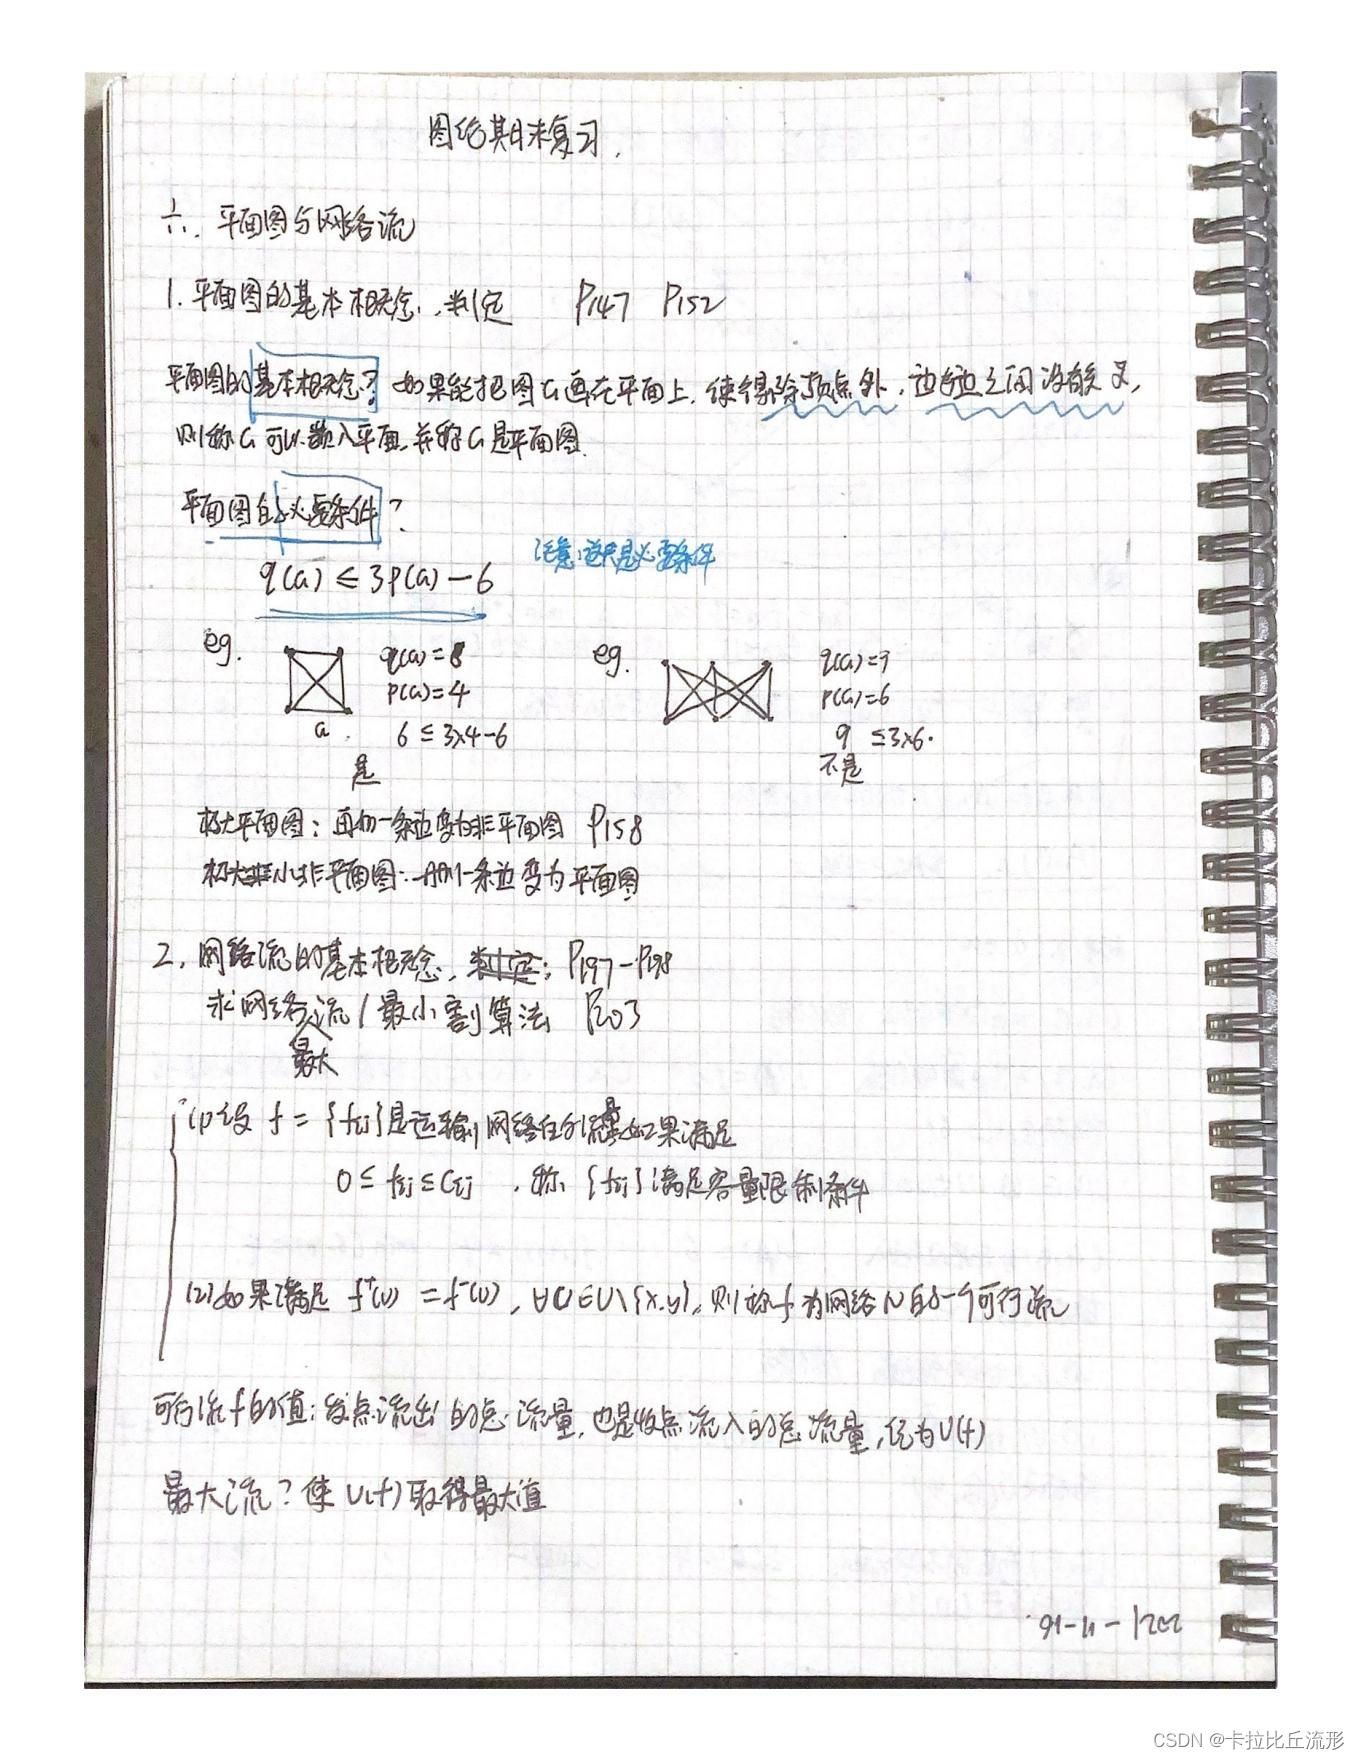 图论期末复习.
六. 平面图与网络流
1. 平面图的基本概念,判定 P147 P152
平面图的基本概念? 如果能把图G画在平面上,使得除顶点外,边与边之间没有交叉,
则称G可以嵌入平面,并称G是平面图.
平面图的必要条件?
注意:这只是必要条件
q(G) ≤ 3p(G) - 6
eg. q(G)=6 eg. q(G)=9
p(G)=4 p(G)=6
G. 6 ≤ 3×4-6 9 ≤3×6.
是 不是
极大平面图: 再加一条边变为非平面图 P158
极小非平面图: 一条边变为平面图
2. 网络流的基本概念, 判定; P197-P198
求网络流/最小割算法 P203
最大
(1) 设 f = {fij}是运输网络的流量,如果满足
0 ≤ fij ≤ Cij , 称 {fij}满足容量限制条件
(2) 如果满足 f⁺(v) = f⁻(v), ∀v∈V\{x,y}, 则称f为网络N的一个可行流
可行流f的值: 发点流出的总流量,也是收点流入的总流量,记为V(f)
最大流? 使V(f)取得最大值
CSDN @卡拉比丘流形